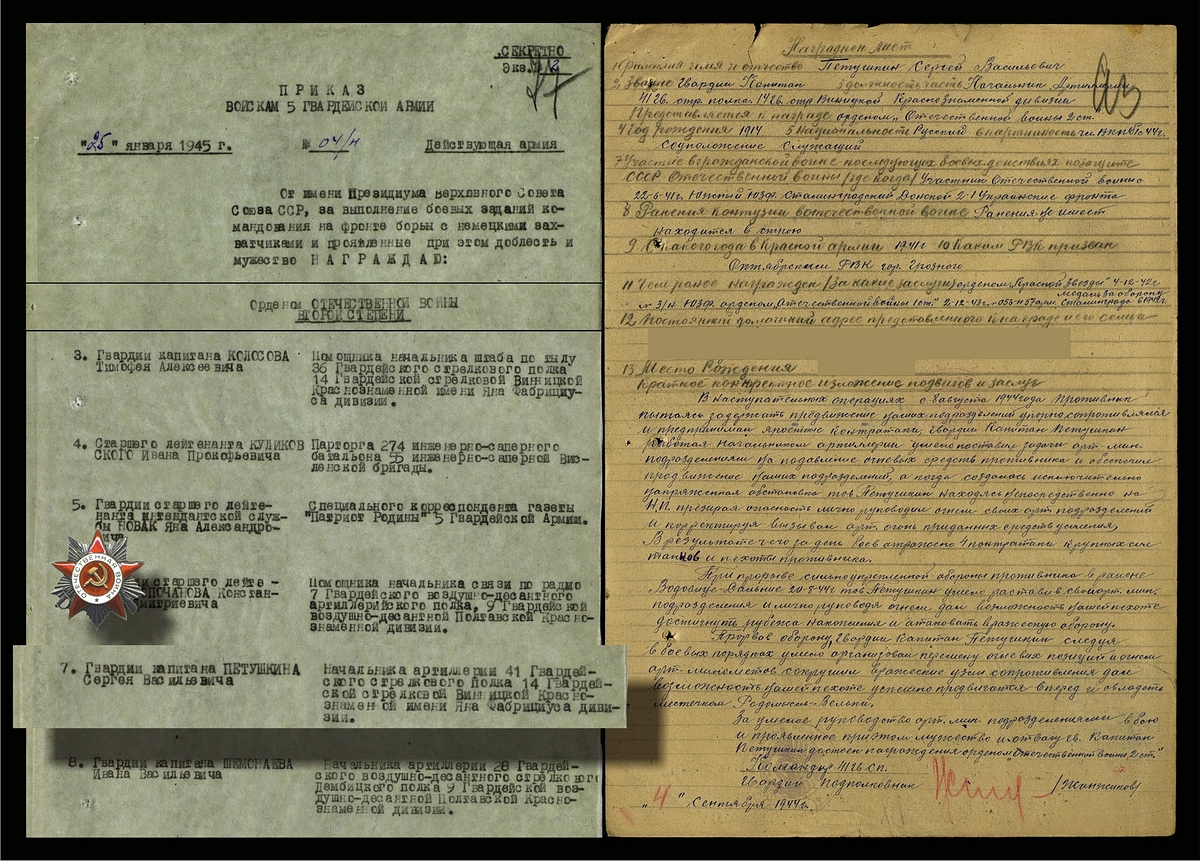 СЕКРЕТНО
Экз.№ 2
ПРИКАЗ
ВОЙСКАМ 5 ГВАРДЕЙСКОЙ АРМИИ
"25" января 1945 г. № 04/н Действующая армия
От имени Президиума Верховного Совета
Союза ССР, за выполнение боевых заданий ко-
мандования на фронте борьбы с немецкими зах-
ватчиками и проявленные при этом доблесть и
мужество НАГРАЖДАЮ:
Орденом ОТЕЧЕСТВЕННОЙ ВОЙНЫ
ВТОРОЙ СТЕПЕНИ
3. Гвардии капитана КОЛОСОВА
Тимофея Алексеевича
Помощника начальника штаба по тылу
36 Гвардейского стрелкового полка
14 Гвардейской стрелковой Винницкой
Краснознаменной имени Яна Фабрициу-
са дивизии.
4. Старшего лейтенанта КУЛИКОВ
СКОГО Ивана Прокофьевича
Парторга 274 инженерно-саперного
батальона 55 инженерно-саперной Вис-
ленской бригады.
5. Гвардии старшего лейте-
нанта интендантской служ-
бы НОВАК Яна Александро-
вича
Специального корреспондента газеты
"Патриот Родины" 5 Гвардейской Армии.
ОТЕЧЕСТВЕННАЯ ВОЙНА
ии старшего лейте -
ПОЧАНОВА Констан-
митриевича
Помощника начальника связи по радио
7 Гвардейского воздушно-десантного
артиллерийского полка, 9 Гвардейской
воздушно-десантной Полтавской Красно-
знаменной дивизии.
7. Гвардии капитана ПЕТУШКИНА
Сергея Васильевича
Начальника артиллерии 41 Гвардей-
ского стрелкового полка 14 Гвардей-
ской стрелковой Винницкой Красно-
знаменной имени Яна Фабрициуса диви-
зии.
8. Гвардии капитана ШЕМОНАЕВА
Ивана Васильевича
Начальника артиллерии 28 Гвардей-
ского воздушно-десантного стрелково
Дембицкого полка 9 Гвардейской воз-
душно-десантной Полтавской Красно-
знаменной дивизии.
Наградной лист
1 Фамилия имя и отчество Петушкин Сергей Васильевич
2 Звание Гвардии Капитан 3 должность часть Начальник Артиллерии
41 Гв. стр. полка. 14 Гв. стр Виницкой Краснознаменой дивизии
Представляется к награде орденом „Отечественной войны 2 ст.
4 Год рождения 1914 5 Национальность Русский 6 партийность чл. ВКП(б) с 44г.
Соцположение Служащий
7 Участие в гражданской войне последующих боевых действиях по защите
СССР Отечественной войны (где когда) Участник Отечественной войны с
22-6-41г. Южный ЮЗФр. Сталинградский Донской 2-1 Украинские фронта
8 Ранения контузии в отечественной войне Ранения не имеет
находится в строю
9. С какого года в Красной армии 1941г 10 Каким РВК призван
Октябрьским РВК гор. Грозного
11 Чем ранее награжден (за какие заслуги) орденом „Красной Звезды" 4-12-42г.
№ 3/н ЮЗФр. орденом „Отечественной войны 1 ст." 2-12-43г. Медаль за оборону
Сталинграда
12 Постоянный домашний адрес представленного к награде и его семьи
13 Место Рождения
Краткое конкретное изложение подвигов и заслуг
В наступательных операциях с 8 августа 1944 года противник
пытаясь задержать продвижение наших подразделений упорно сопротивлялся
и предпринимал яростные контратаки, Гвардии Капитан Петушкин
работая начальником артиллерии умело поставил задачи арт. мин.
подразделениям на подавление огневых средств противника и обеспечил
продвижение наших подразделений, а когда создалась исключительно
напряженная обстановка тов. Петушкин находясь непосредственно на
Н.П. презирая опасность лично руководил огнем своих арт. подразделений
и корректируя вызывал арт. огонь приданных средств усиления,
В результате чего за день боев отражено 4 контратаки крупных сил
танков и пехоты противника.
При прорыве сильно укрепленной обороны противника в районе
20-8-44г тов Петушкин умело расставил свои арт. мин.
подразделения и лично руководя огнем дал возможность нашей пехоте
достигнуть рубежа накопления и атаковать вражескую оборону.
Прорвав оборону, Гвардии Капитан Петушкин следуя
в боевых порядках умело организовал перемену огневых позиций и огнем
арт-минометов сокрушил вражеские узлы сопротивления дал
возможность нашей пехоте успешно продвигатся вперед и овладеть
местечком Радомысль-Вельки.
За умелое руководство арт. мин. подразделениями в бою
и проявленное при этом мужество и отвагу гв. Капитан
Петушкин достоен награждения орденом „Отечественной войны 2 ст"
Командир 41 Гв. СП.
Гвардии Подполковник
"4" Сентября 1944г.